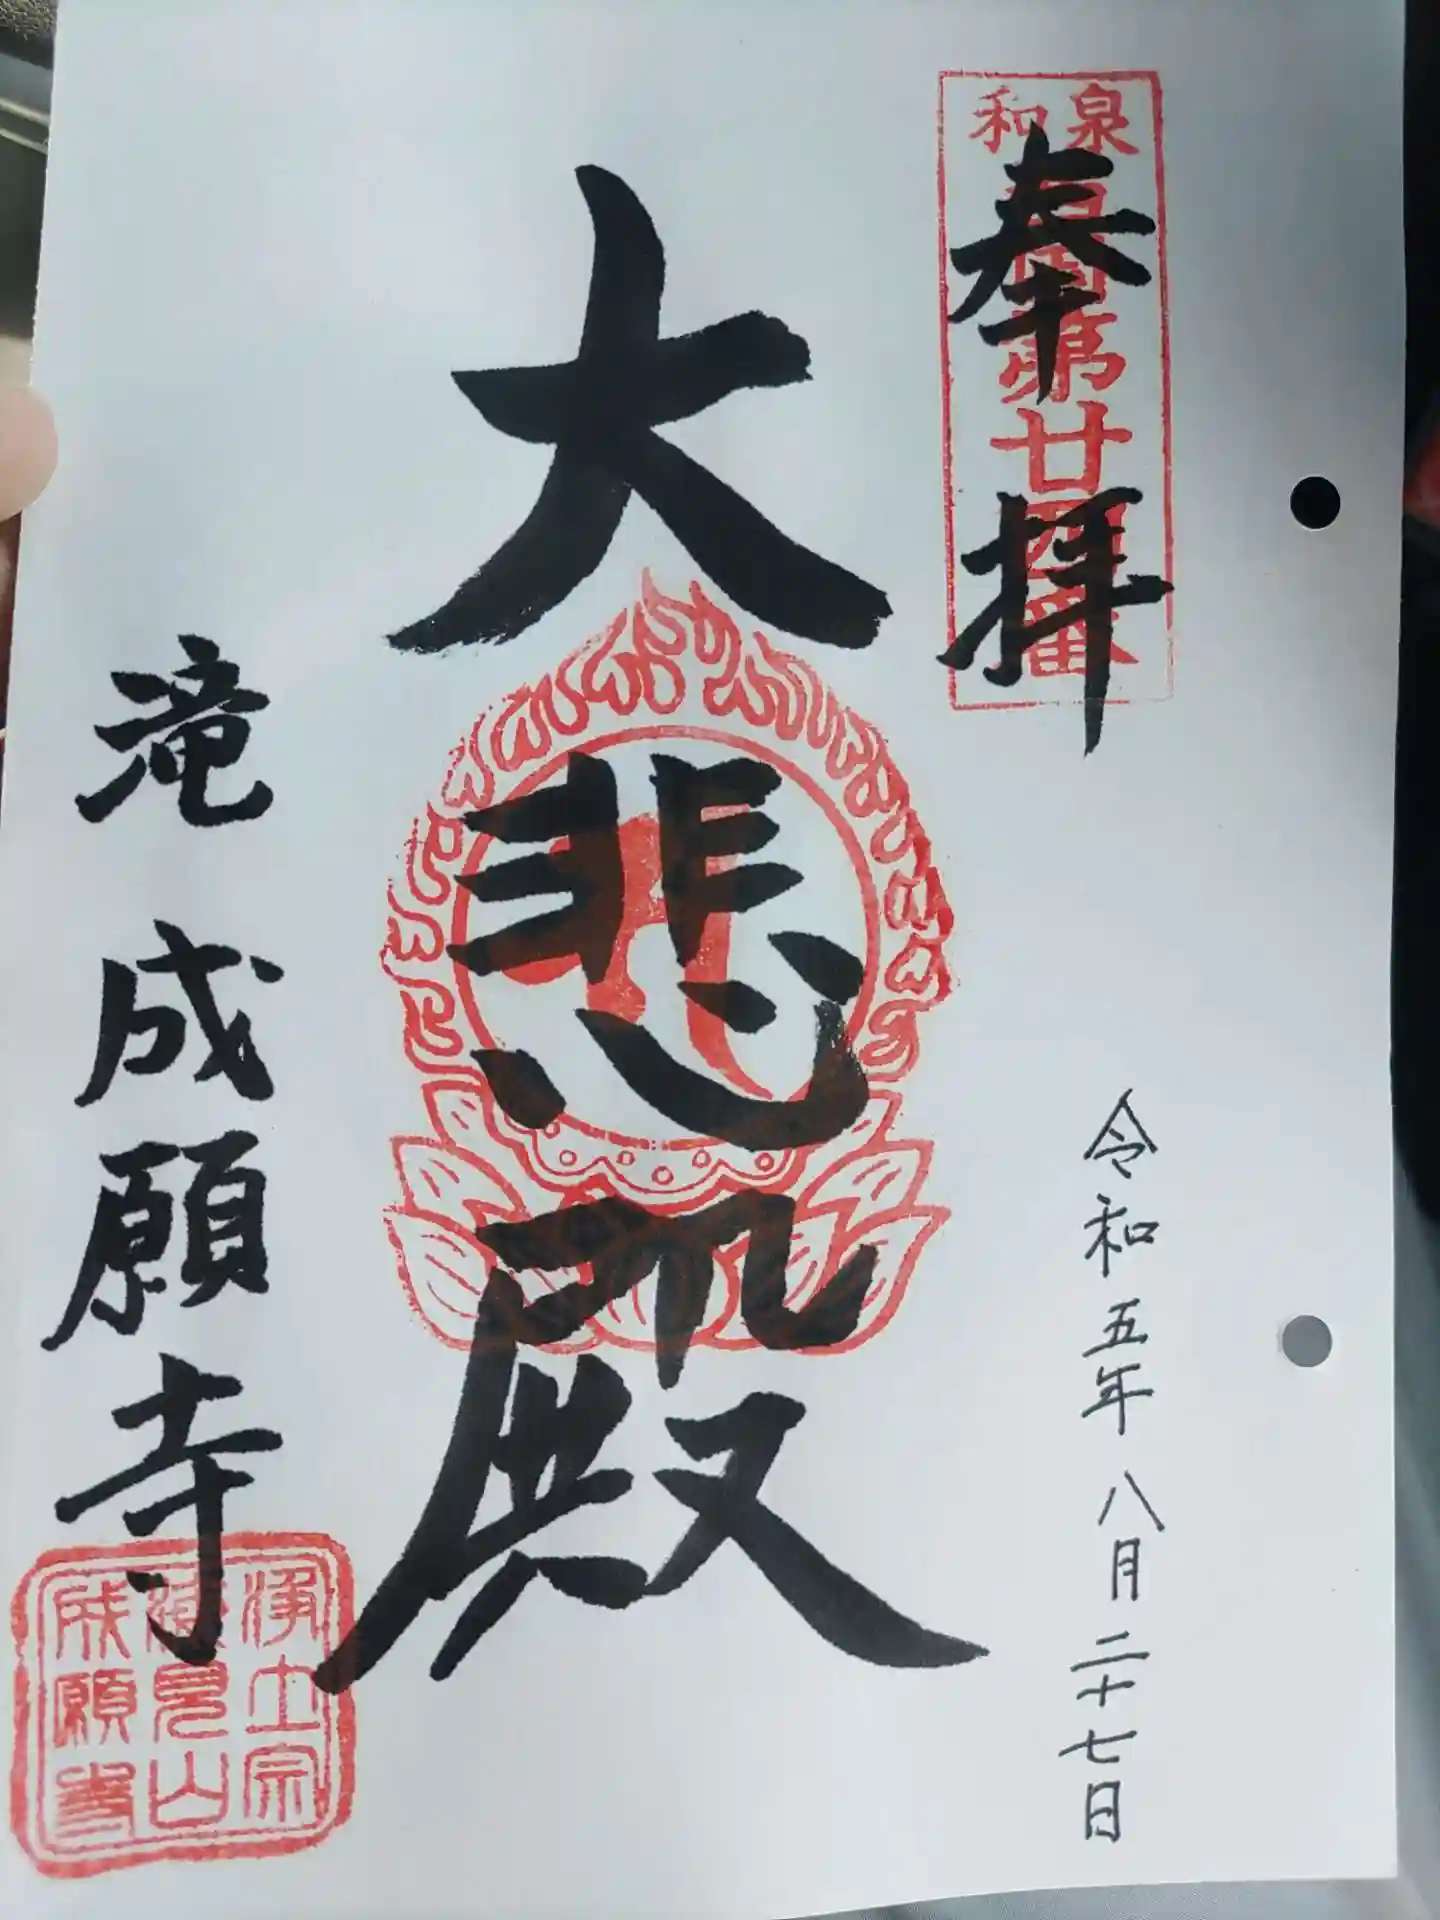 和泉
西国第廿四番
奉拝
令和五年八月二十七日
大悲殿
滝成願寺
浄土宗
山
成願寺